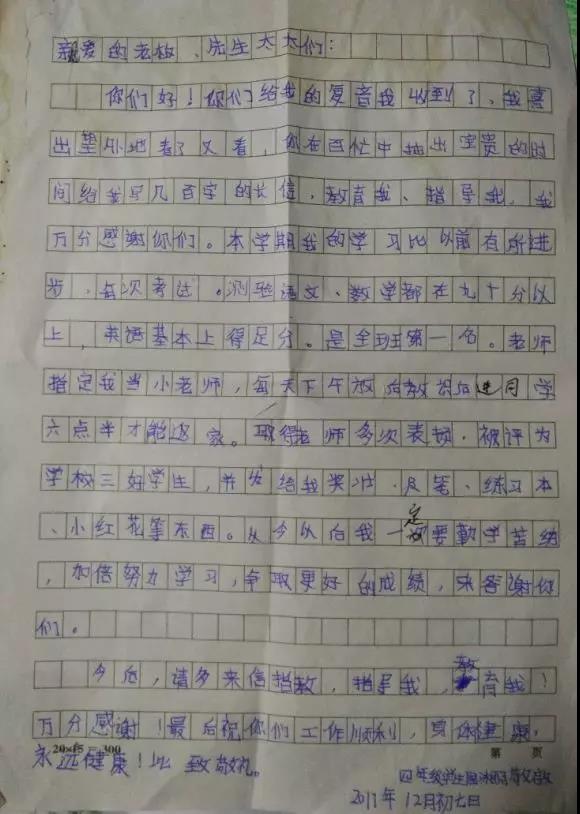 亲爱的老板、先生太太们：
你们好！你们给我的复音我收到了、我喜
出望外地看了又看，你在百忙中抽出宝贵的时
间给我写几百字的长信，教育我、指导我，我
万分感谢你们。本学期我的学习比以前有所进
步，每次考试。测验语文、数学都在九十分以
上，英语基本上得足分。是全班第一名。老师
指定我当小老师，每天下午放后教后进同学
六点半才能返家。取得老师多次表，被评为
学校三好学生，并发给我奖状、尺笔、练习本
、小红花等东西。从今以后我一定要勤学苦练
，加倍努力学习，争取更好的成绩，来答谢你
们。
今后，请多来信指教，指导我，教育我！
万分感谢！最后祝你们工作顺利，身体健康，
永远健康！比致敬礼。
20×15=300 第 页
四年级学生
2017年12月初七日